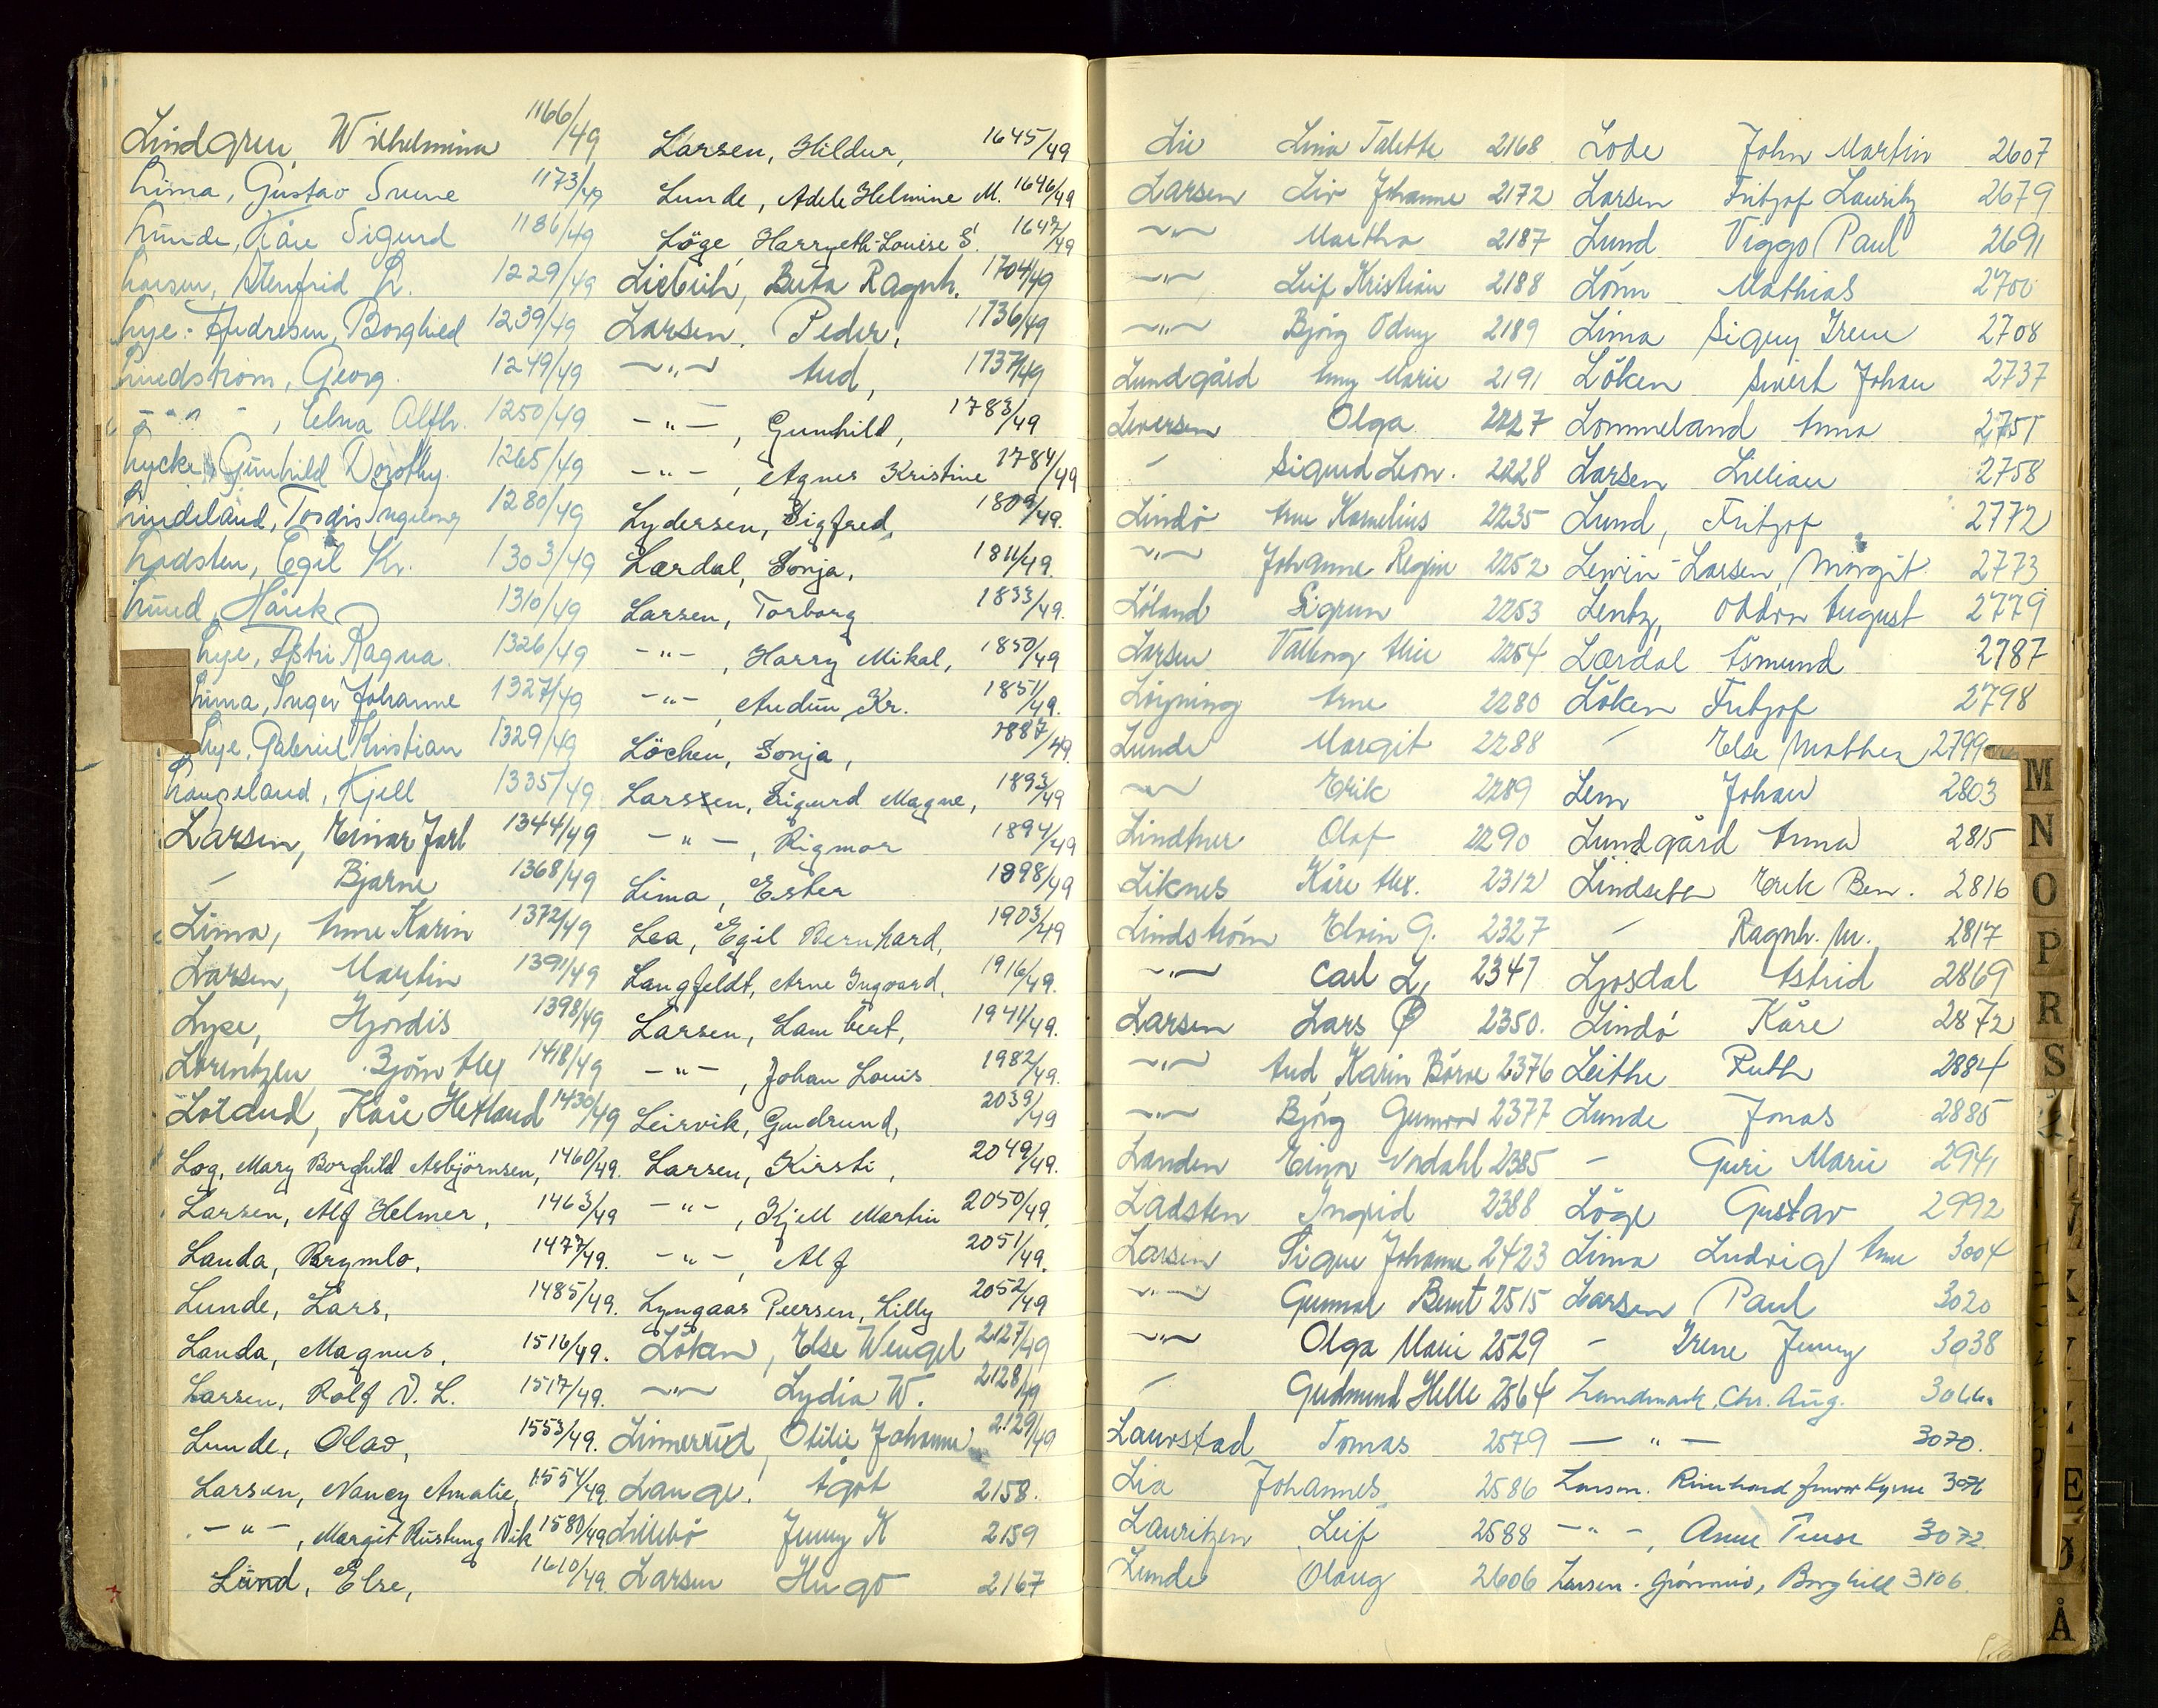 Lindgren, Wilhelmina 1166/49
Lima, Gustav Svene 1173/49
Lunde, Kåre Sigurd 1186/49
Larsen, Stenfrid L. 1229/49
Lye-Andresen, Borghild 1239/49
Lindstrøm, Georg. 1249/49
-"- , Edna Alfh. 1250/49
Lycke, Gunhild Dorothy 1265/49
Lindeland, Tordis Ingeborg 1280/49
Ladsten, Egil Kr. 1303/49
Lund, Hårek 1310/49
Lye, Astri Ragna. 1326/49
Lima, Inger Johanne 1327/49
Lye, Gabriel Kristian 1329/49
Langeland, Kjell 1335/49
Larsen, Einar Jarl 1344/49
- Bjarne 1368/49
Lima, Anne Karin 1372/49
Larsen, Martin 1391/49
Lyse, Hjördis 1398/49
Lorentzen Björn Alex 1418/49
Loland, Kåre Hetland 1430/49
Log, Mary Borghild Asbjörnsen, 1460/49.
Larsen, Alf Helmer, 1463/49
Landa, Brymlo, 1477/49.
Lunde, Lars, 1485/49.
Landa, Magnus, 1516/49.
Larsen, Rolf D. L. 1517/49.
Lunde, Olav, 1553/49.
Larsen, Nancy Amalie, 1554/49.
-"- , Margit Rustung Vik 1580/49
Lund, Else, 1610/49.
Larsen, Hildur, 1645/49
Lunde, Adele Helmine M. 1646/49
Löge, Harryeth-Louise S. 1647/49
Liebich, Beta Ragnh. 1704/49
Larsen, Peder, 1736/49
-"- Aud, 1737/49
-"- , Gunhild, 1783/49
-"- , Agnes Kristine 1784/49
Lydersen, Sigfred, 1809/49.
Lærdal, Sonja, 1811/49.
Larsen, Torborg 1833/49.
-"- , Harry Mikal, 1850/49
-"- , Audun Kr. 1851/49.
Löchen, Sonja, 1887/49.
Larssen, Sigurd Magne, 1893/49
-"- , Rigmor 1894/49
Lima, Ester 1898/49
Lea, Egil Bernhard, 1903/49
Langfeldt, Arne Ingvard, 1916/49.
Larsen, Lambert, 1941/49.
-"- , Johan Louis 1982/49.
Leirvik, Gudrund, 2039/49
Larsen, Kirsti, 2049/49.
-"- , Kjell Martin 2050/49.
-"- , Alf 2051/49.
Lyngaas Peersen, Lilly 2052/49
Löken, Else Wengel 2127/49
-"- Lydia W. 2128/49
Linnerud, Otilie Johanne 2129/49
Lange, Ågot 2158.
Lillebö Jenny K 2159
Larsen Hugo 2167
Lie Lina Talette 2168
Larsen Liv Johanne 2172
-"- Martha 2187
-"- Leif Kristian 2188
-"- Bjørg Odny 2189
Lundgård Amy Marie 2191
Leversen Olga 2227
- Sigurd Leon. 2228
Lindö Arne Kornelius 2235
-"- Johanne Regine 2252
Löland Sigrun 2253
Larsen Valborg Alice 2254
Löyning Arne 2280
Lunde Margit 2288
-"- Erik 2289
Lindtner Olaf 2290
Liknes Kåre Alex. 2312
Lindström Elvin G. 2327
-"- Carl L. 2347
Larsen Lars Ø 2350.
-"- Aud Karin Börve 2376
-"- Bjørg Gunvor 2377
Landen Einar Nordahl 2385
Ladsten Ingrid 2388
Larsen Signe Johanne 2423
-"- Gunnar Bernt 2515
-"- Olga Marie 2529
- Gudmund Helle 2564
Laurstad Tomas 2579
Lia Johannes 2586
Lauritzen Leif 2588
Lunde Olaug 2606
Lode John Martin 2607
Larsen Fritjof Lauritz 2679
Lund Viggo Paul 2691
Lönn Mathias 2700
Lima Signy Irene 2708
Löken Sivert Johan 2737
Lommeland Anna 2751
Larsen Lillian 2758
Lund, Fritjof 2772
Lewin-Larsen, Margit 2773
Lentz, Ottdon August 2779
Lærdal Åsmund 2787
Löken Fritjof 2798
- Else Mathea 2799
Lem Johan 2803
Lundgård Anna 2815
Lindseth Erik Ben. 2816
- Ragnh. M. 2817
Ljosdal Astrid 2869
Lindö Kåre 2872
Leithe Ruth 2884
Lunde Jonas 2885
- Guri Marie 2941
Löge Gustav 2992
Lima Ludvig Arne 3004
Larsen Paul 3020
- Irene Jenny 3038
Landmark, Chr. Aug. 3066.
-"- 3070.
Larsen. 3071
-"- , Anne 3072.
Larsen. , Borghild 3106.
M
N
O
P
R
S
E
Ø
Å